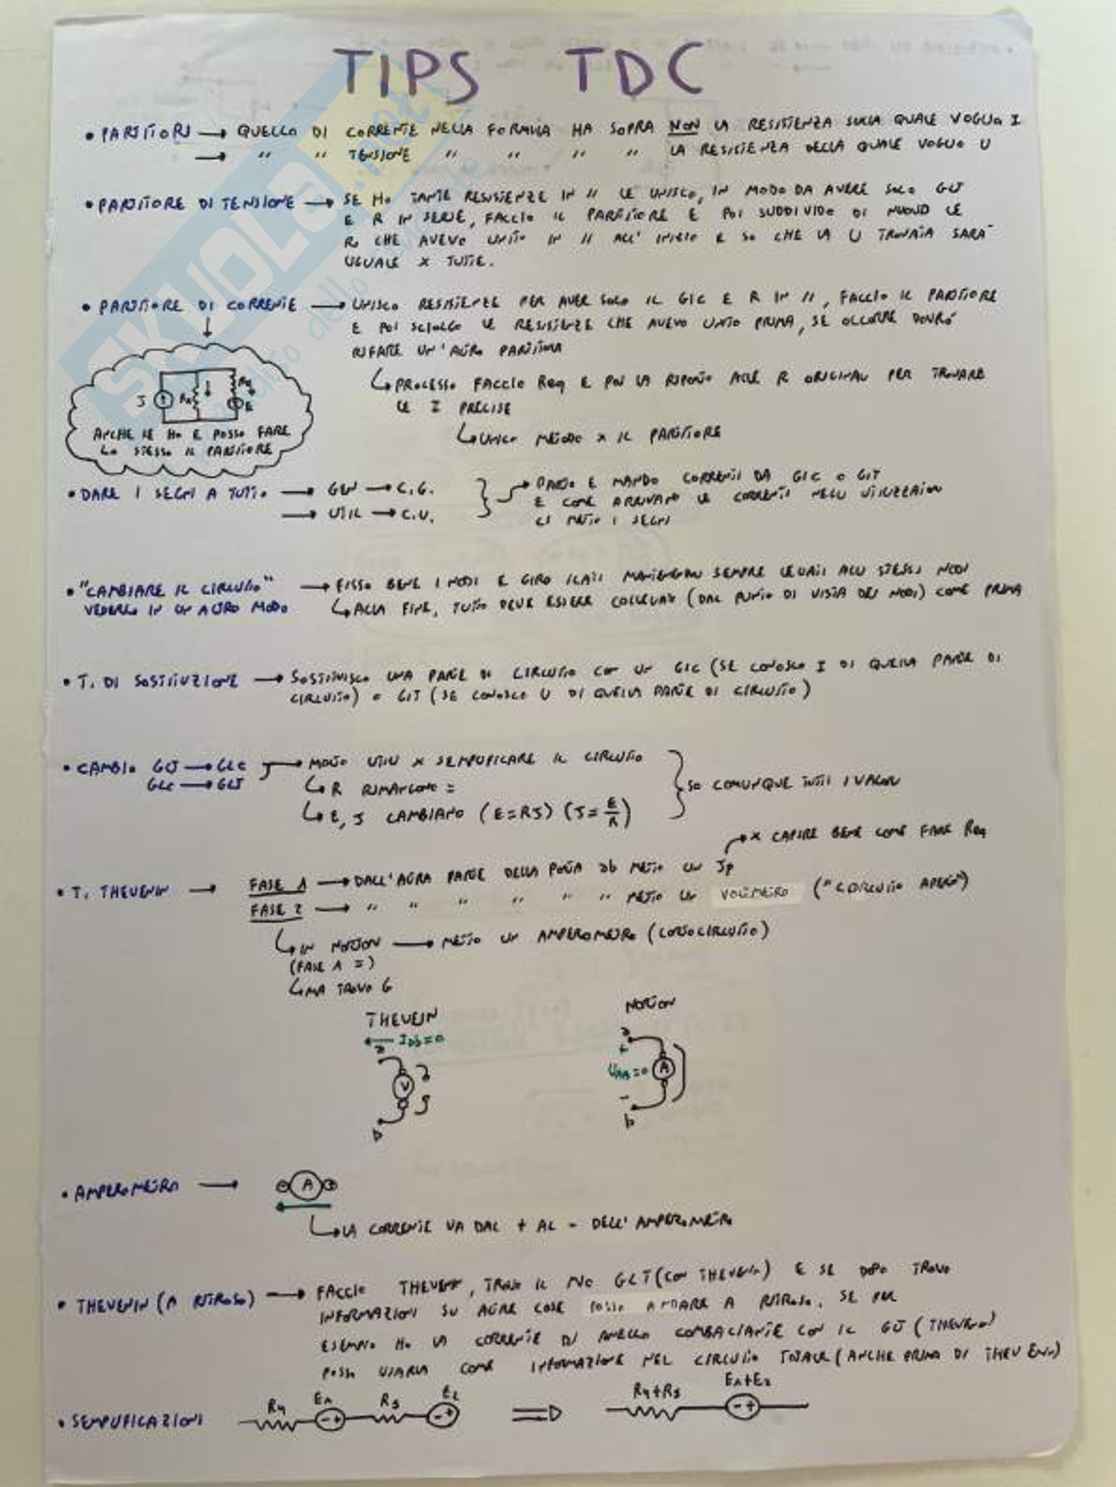 TIPS TDC
• PARTITORI → QUELLO DI CORRENTE NELLA FORMULA HA SOPRA NON LA RESISTENZA SULLA QUALE VOGLIO I
→ " " TENSIONE " " " " LA RESISTENZA DELLA QUALE VOGLIO U
• PARTITORE DI TENSIONE → SE HO TANTE RESISTENZE IN // LE UNISCO, IN MODO DA AVERE SOLO GIT
E R IN SERIE, FACCIO IL PARTITORE E POI SUDDIVIDO DI NUOVO LE
R CHE AVEVO UNITO IN // ALL'INIZIO E SO CHE LA U TROVATA SARA'
UGUALE X TUTTE.
• PARTITORE DI CORRENTE → UNISCO RESISTENZE PER AVER SOLO IL GIC E R IN //, FACCIO IL PARTITORE
E POI SCIOLGO LE RESISTENZE CHE AVEVO UNITO PRIMA, SE OCCORRE DOVRO'
RIFARE UN'ALTRO PARTITORE
↳ PROCESSO FACCIO Req E POI LA RIPORTO ALLE R ORIGINALI PER TROVARE
LE I PRECISE
↳ UNICO METODO X IL PARTITORE
J E
ANCHE SE HO E POSSO FARE
LO STESSO IL PARTITORE
• DARE I SEGNI A TUTTO → GEN → C.G.
→ UTIL → C.U.
→ PARTO E MANDO CORRENTI DA GIC O GIT
E COME ARRIVANO LE CORRENTI NEGLI UTILIZZATORI
CI METTO I SEGNI
• "CAMBIARE IL CIRCUITO" → FISSO BENE I NODI E GIRO I LATI MANTENENDO SEMPRE LEGATI AGLI STESSI NODI
VEDERLO IN UN ALTRO MODO ↳ ALLA FINE, TUTTO DEVE ESSERE COLLEGATO (DAL PUNTO DI VISTA DEI NODI) COME PRIMA
• T. DI SOSTITUZIONE → SOSTITUISCO UNA PARTE DI CIRCUITO CON UN GIC (SE CONOSCO I DI QUELLA PARTE DI
CIRCUITO) O GIT (SE CONOSCO U DI QUELLA PARTE DI CIRCUITO)
• CAMBIO GIT → GIC → MOLTO UTILE X SEMPLIFICARE IL CIRCUITO
GIC → GIT ↳ R RIMANGONO =
↳ E, J CAMBIANO (E=RJ) (J=E/R)
SO COMUNQUE TUTTI I VALORI
→ X CAPIRE BENE COME FARE Req
• T. THEVENIN → FASE 1 → DALL'ALTRA PARTE DELLA PORTA ab METTO UN Jp
FASE 2 → " " " " " METTO UN VOLTMETRO ("CIRCUITO APERTO")
↳ IN NORTON → METTO UN AMPEROMETRO (CORTOCIRCUITO)
(FASE 1 =)
↳ MA TROVO G
THEVENIN
Iab=0
a
V
b
NORTON
a
+
UAB=0
A
-
b
• AMPEROMETRO → A
↳ LA CORRENTE VA DAL + AL - DELL'AMPEROMETRO
• THEVENIN (A RITROSO) → FACCIO THEVENIN, TROVO IL MIO GIT (CON THEVENIN) E SE DOPO TROVO
INFORMAZIONI SU ALTRE COSE POSSO ANDARE A RITROSO. SE PER
ESEMPIO HO LA CORRENTE DI ANELLO COMBACIANTE CON IL GIT (THEVENIN)
POSSO USARLA COME INFORMAZIONE NEL CIRCUITO TOTALE (ANCHE PRIMA DI THEVENIN)
• SEMPLIFICAZIONI R4 E1 R3 E2 ⇒ R4+R3 E1+E2
SKUOLA.net